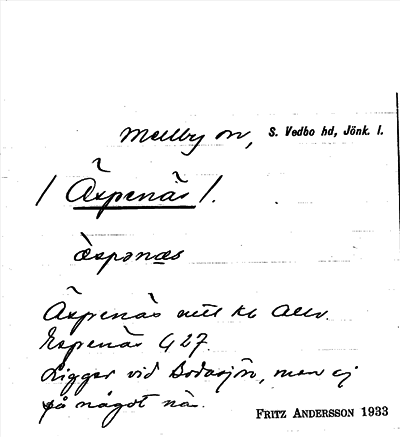 Mellby sn, S. Vedbo hd, Jönk. l.
/ Äspenäs /.
äspənæs
Äspenäs enl kb
Espenäs G 27.
Ligger vid Bodasjön, men ej
på något näs.
FRITZ ANDERSSON 1933